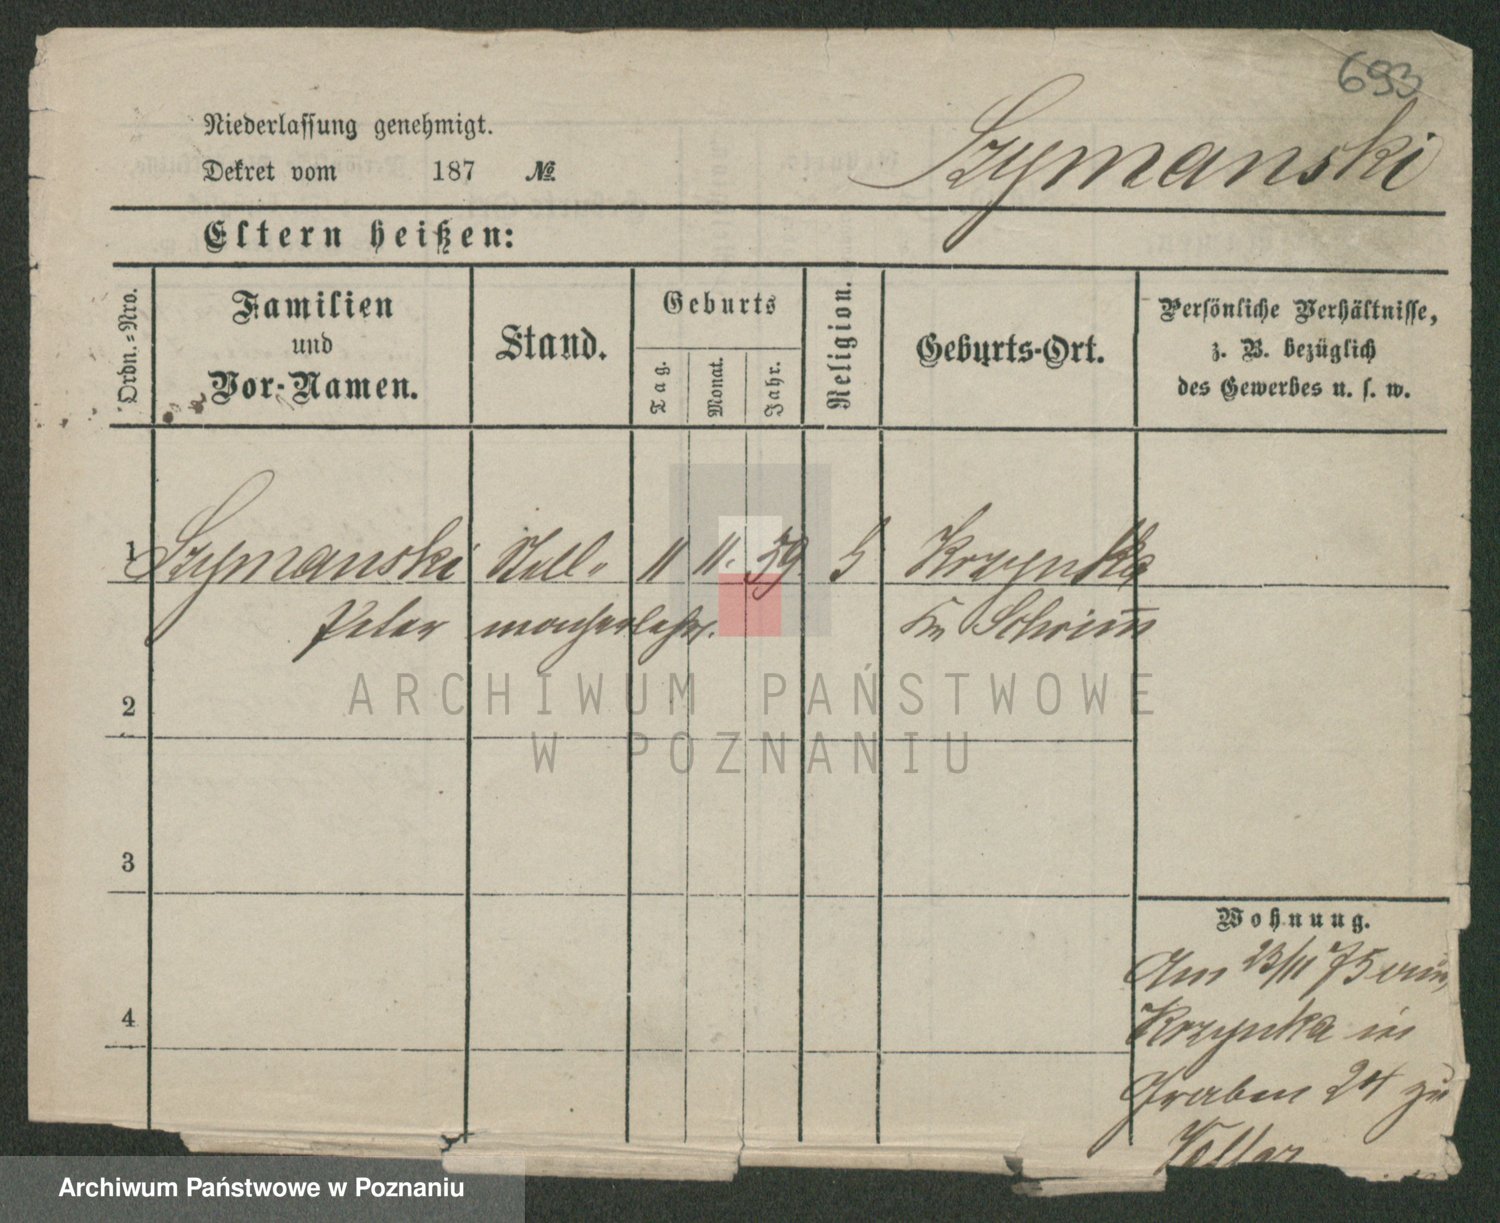 693
Niederlassung genehmigt.
Szymanski
Dekret vom 187 №
Eltern heißen:
Ordn.-Nro.
Familien
und
Vor-Namen.
Stand.
Geburts
Tag.
Monat.
Jahr.
Religion.
Geburts-Ort.
Persönliche Verhältnisse,
z. B. bezüglich
des Gewerbes u. s. w.
1 Szymanski Stell- 11 11. 59 Krzynka
Peter macherlehrl. Kr Schrimm
2
3
4
Wohnung.
Am 23/11 75 aus
Krzynka in
Graben 24 zu
Keller
ARCHIWUM PAŃSTWOWE
W POZNANIU
Archiwum Państwowe w Poznaniu